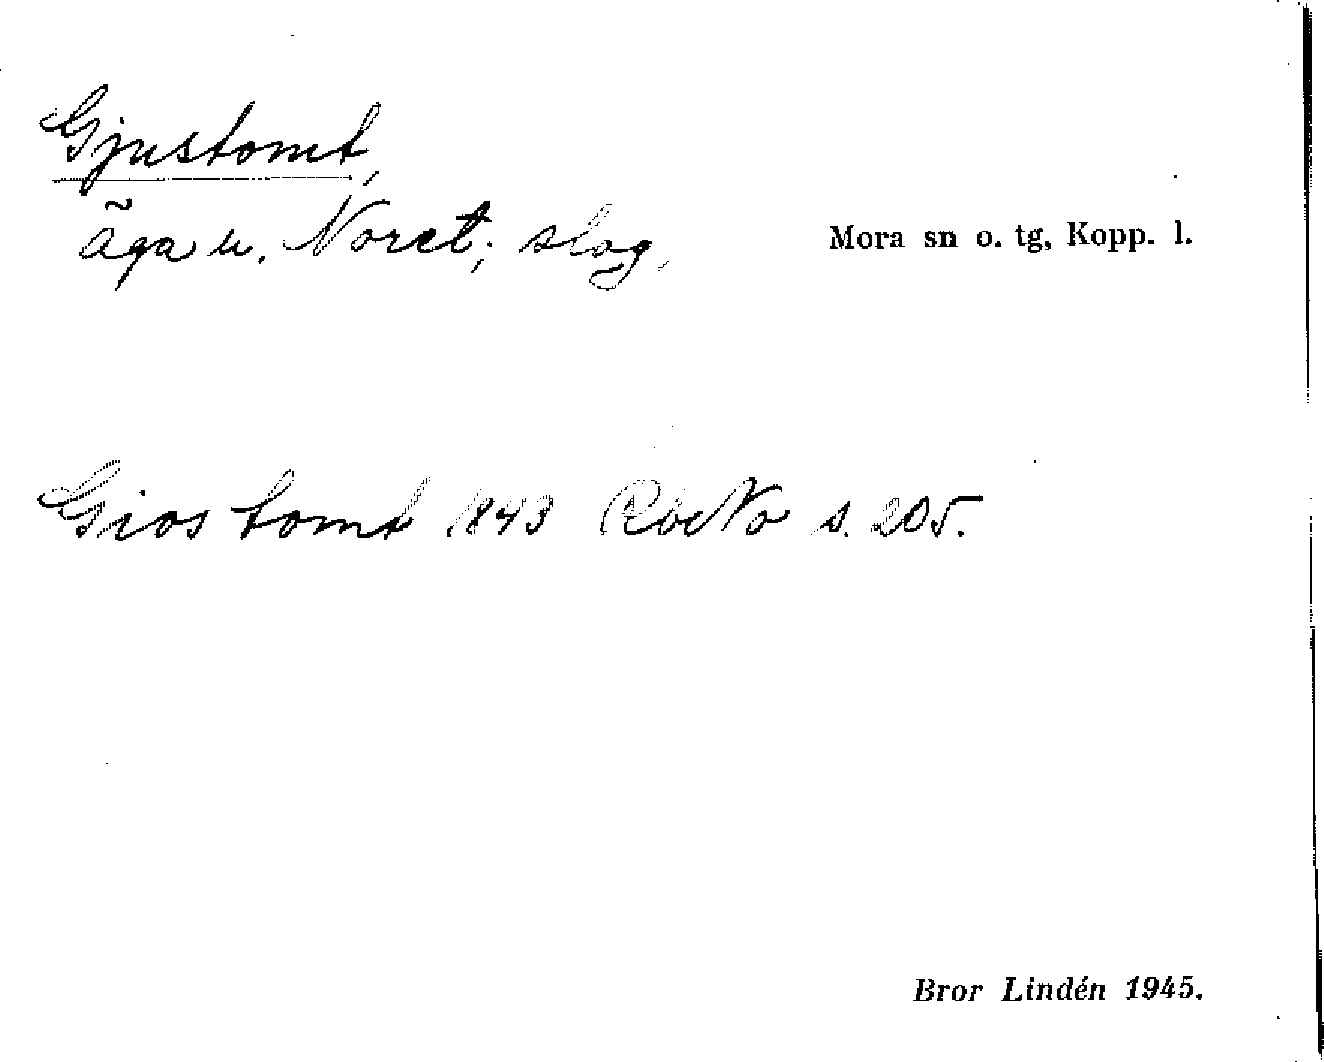 Gjustomt,
äga u. Noret; slog.
Mora sn o. tg, Kopp. l.
Gios tomt 1843 RbcNo s. 205.
Bror Lindén 1945.